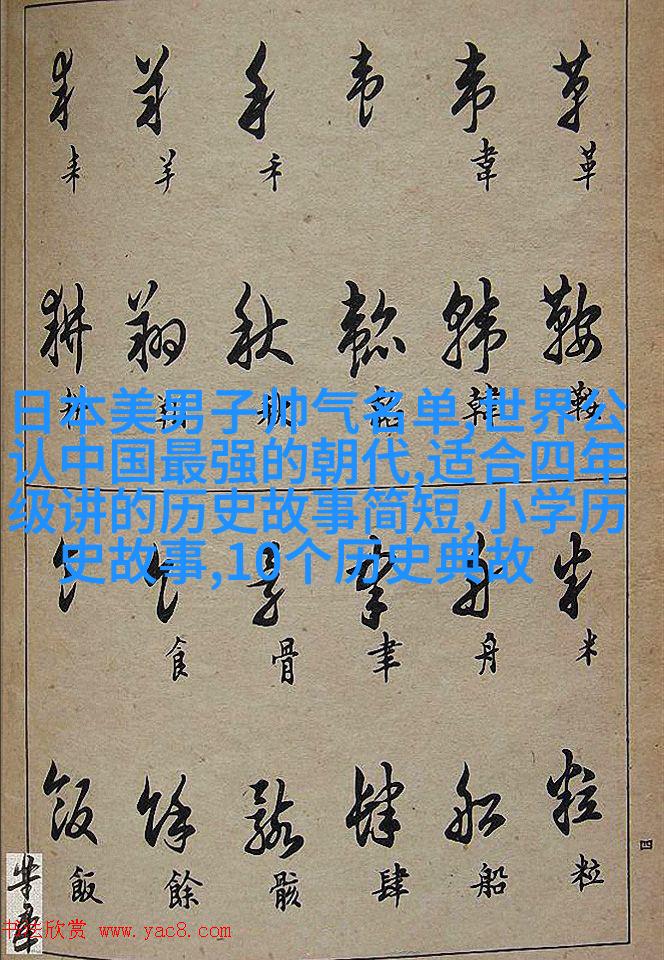 革 韋 禾 羊 耒
鞍 韓 韜 秋 翔 耕
日本美男子帅气名单,世界公
认中国最强的朝代,适合四年
级讲的历史故事简短,小学历
史故事,10个历史典故
米 舟 聿 骨 食
粒 船 肆 骸 餘 飯
四
书法欣赏 www.yac8.com